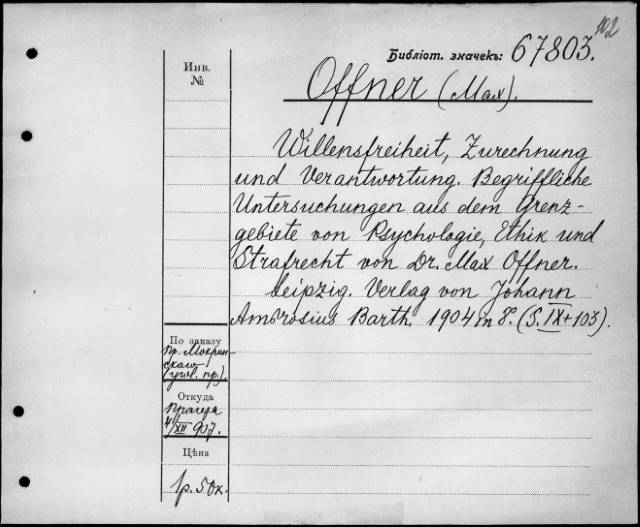 102
Библіот. значекъ: 67803.
Инв.
№
Offner (Max).
Willensfreiheit, Zurechnung
und Verantwortung. Begriffliche
Untersuchungen aus dem Grenz-
gebiete von Psychologie, Ethik und
Strafrecht von Dr. Max Offner.
Leipzig. Verlag von Johann
Ambrosius Barth. 1904 in 8°. (S. IX+103).
По заказу
пр. Мокрин-
скаго
Откуда
Прагера
4/XII 907.
Цѣна
1р. 50к.